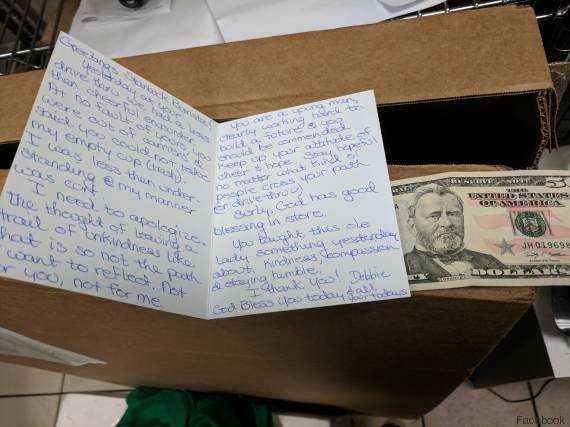 Greetings Starbuck Barista,
Yesterday at your
drive thru we had a less
then cheerful encounter
At no fault of yours, you
were out of carriers &
said you could not take
my empty cup (trash).
I was less then under-
standing & my manner
was curt.
I need to apologize-
the thought of leaving a
trail of unkindness like
that is so not the path
I want to reflect. Not
for you, not for me
You are a young man,
clearly working hard to
build a future & you
should be commended
keep up your attitude of
cheer & hope. Stay hopeful
no matter what kind of
people cross your path
(or drive thru)
Sorly, God has good
blessing in store.
You taught this ole
lady something yesterday
about, kindness, compassion
& staying humble.
I thank You! Debbie
God Bless You today & all
your todays
RESERVE NOTE
THE
UNITED STATES
OF AMERICA
JH019698
DOLLARS
Facebook